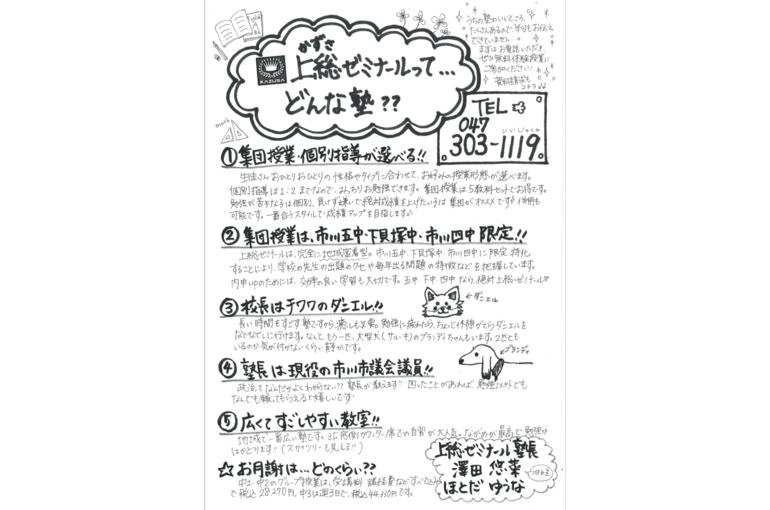 うちの塾のいいところ、
たくさんあるので、半分もお伝え
できていません…
まずはお電話いただき
ぜひ無料体験授業に
ご参加ください!
資料請求も
コチラ
English
math
KAZUSA
かずさ
上総ゼミナールって…
どんな塾??
TEL
047
いいじゅく
303-1119.
①集団授業・個別指導が選べる!!
生徒さんおひとりおひとりの性格やタイプに合わせて、お好みの授業形態が選べます。
個別指導は1:2までなので、みっちりお勉強できます。集団授業は5教科セットでお得です。
勉強が苦手な子は個別、負けず嫌いで絶対成績を上げたい子は集団がオススメです♪併用も
可能です。一番合うスタイルで成績アップを目指します♪
②集団授業は、市川五中・下貝塚中・市川四中限定!!
上総ゼミナールは、完全に地域密着型。市川五中、下貝塚中、市川四中に限定・特化
することにより、学校の先生の出題のクセや毎年出る問題の特徴などを把握しています。
内申upのためには、効率の良い学習も大切です。五中、下中、四中なら、絶対上総ゼミナール
③校長はチワワのダニエル!!
←ダニエル
長い時間をすごす塾ですから、癒しも必要。勉強に疲れたら、ちょっと休憩がてらダニエルを
なでなでしに行けます。なんと、もう一匹、大型犬(サルーキ)のブランディちゃんもいます。2匹とも
いるのか気が付かないくらい静かです。
ブランディ
④塾長は現役の市川市議会議員!!
政治ってなんだかよくわからない??塾長が教えます!!困ったことがあれば、勉強以外でも
なんでも頼ってもらえると嬉しいです!
⑤広くてすごしやすい教室!!
地域で一番広い塾です。3F南側カウンター席での自習が大人気。ながめが最高で勉強が
はかどります!!(スカイツリーも見える!!)
☆お月謝は…どのくらい??
中1・中2のグループ授業は、受講料、諸経費などすべて込み
で税込28,270円、中3は週3日で、税込44,330円です。
上総ゼミナール塾長
澤田 悠菜
ほとだ ゆうな